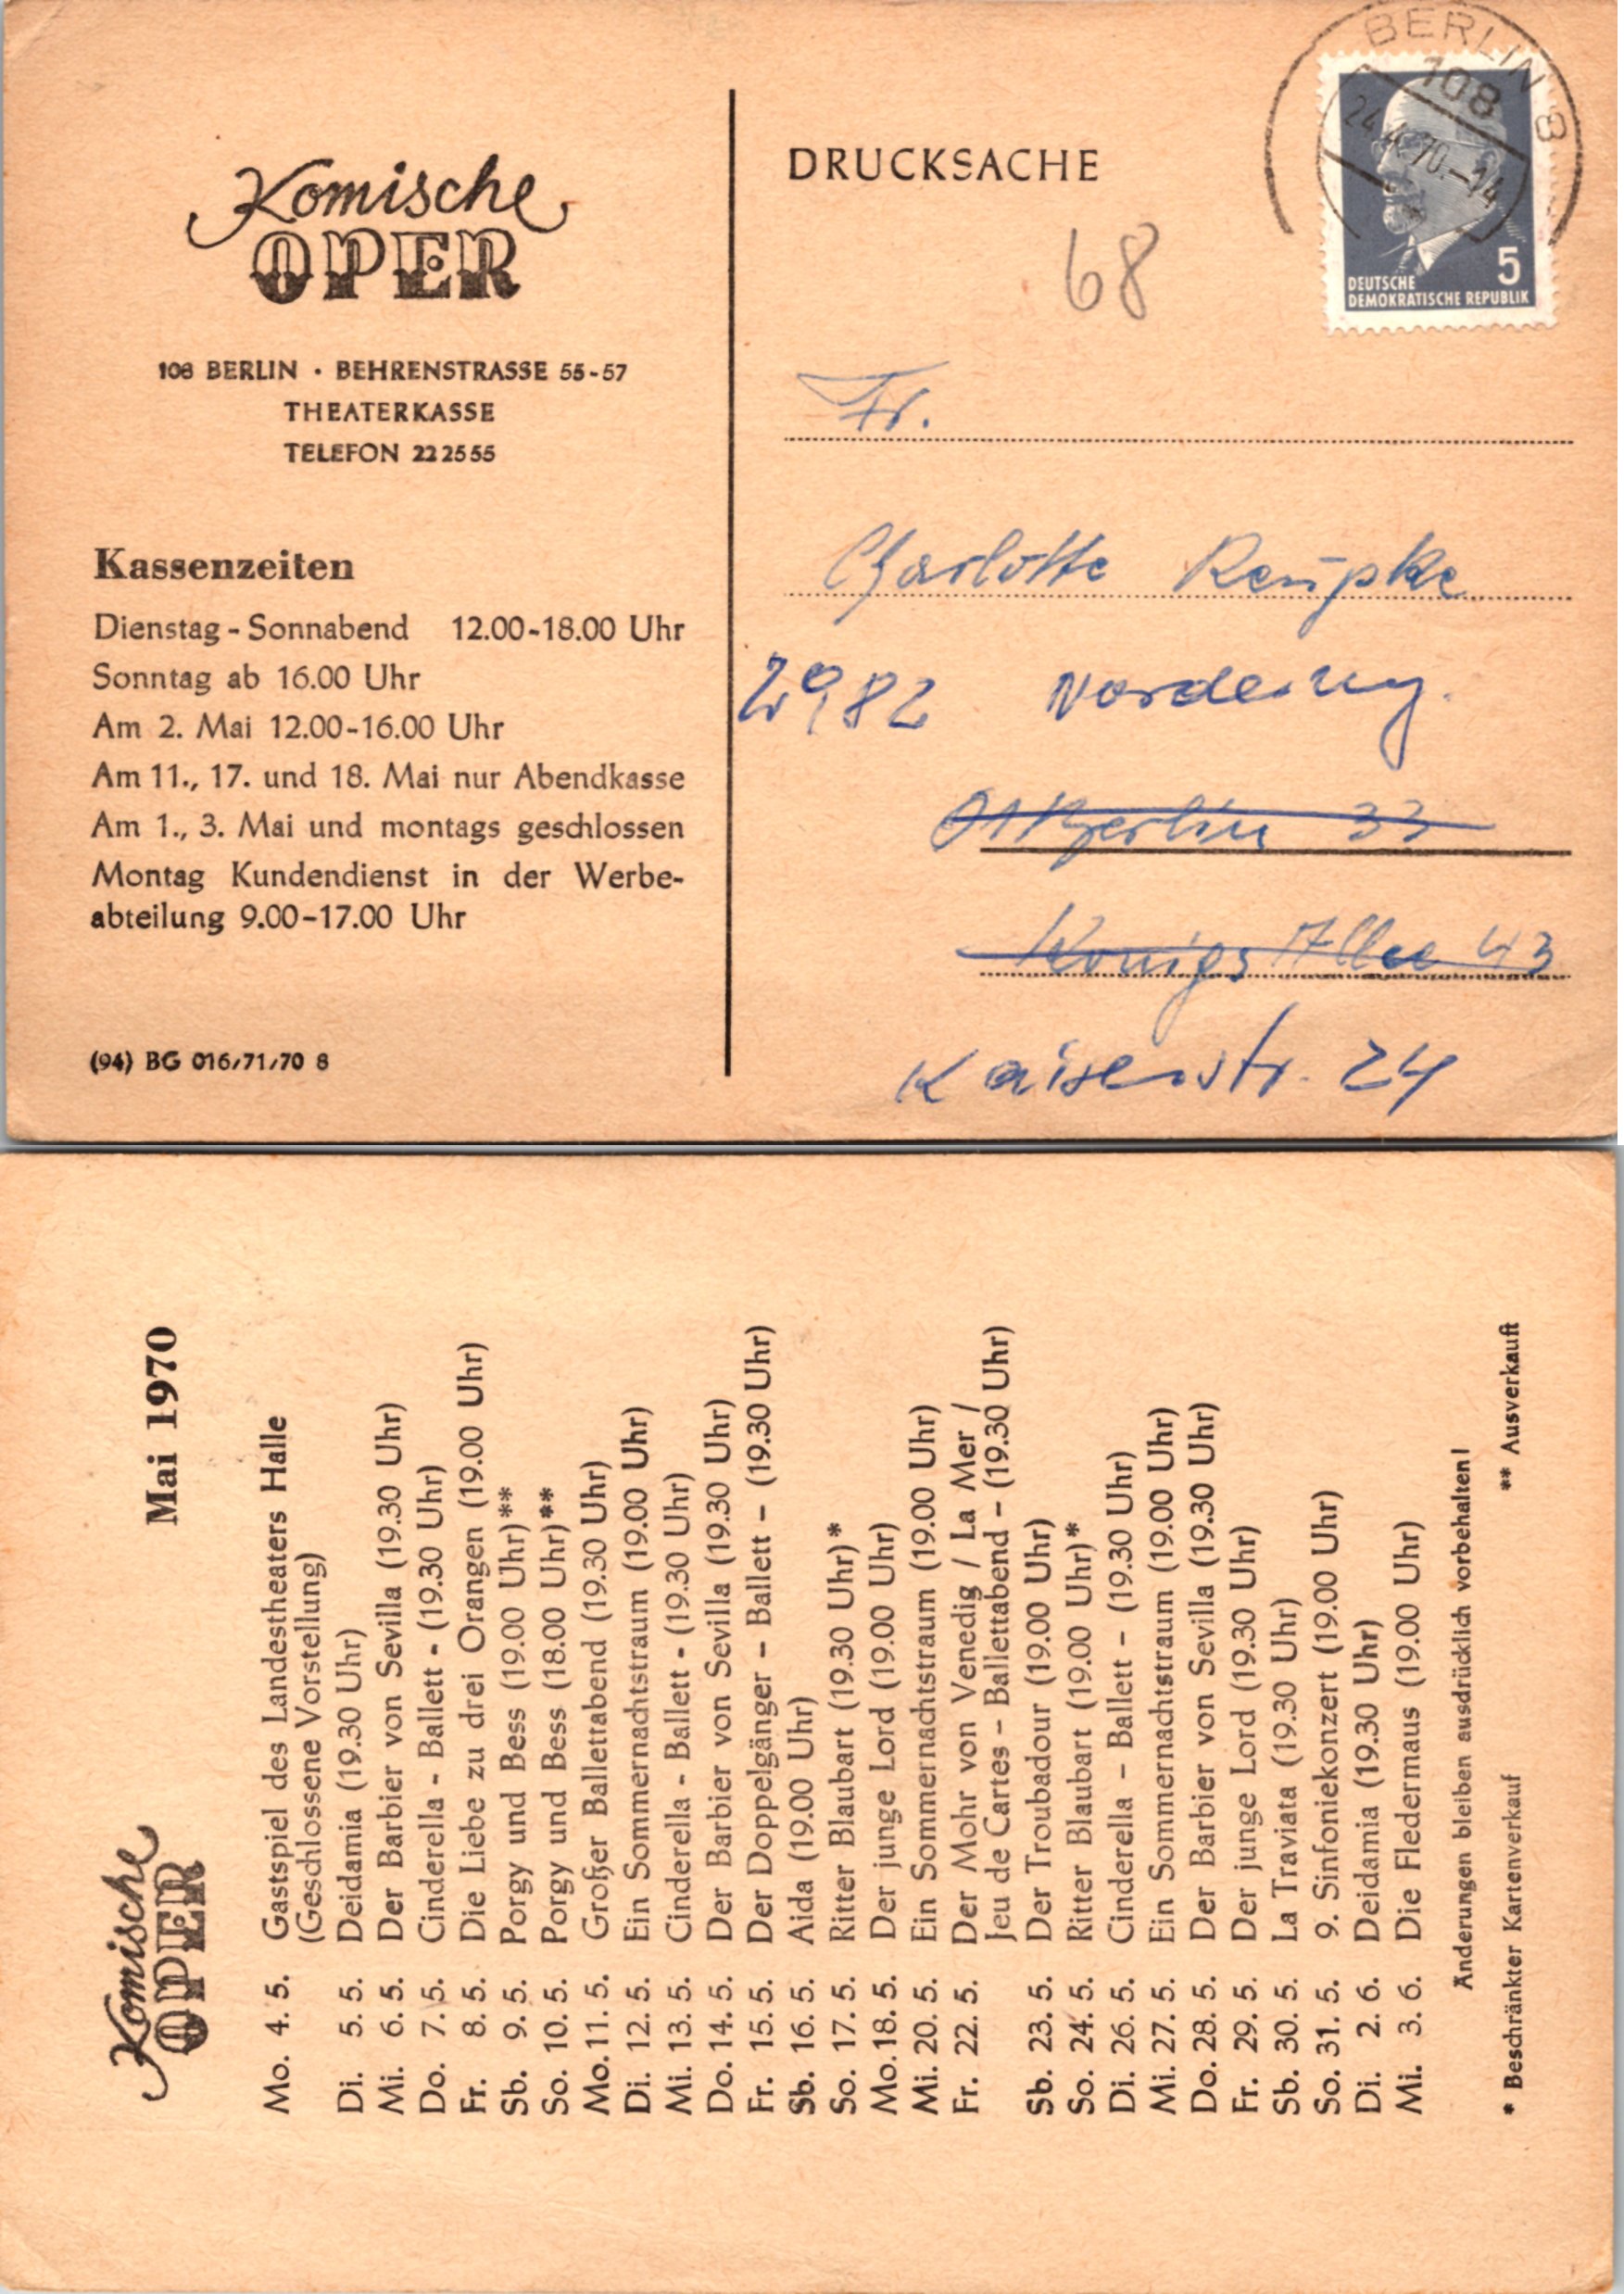 Komische
OPER
108 BERLIN · BEHRENSTRASSE 55-57
THEATERKASSE
TELEFON 222555
Kassenzeiten
Dienstag - Sonnabend 12.00-18.00 Uhr
Sonntag ab 16.00 Uhr
Am 2. Mai 12.00-16.00 Uhr
Am 11., 17. und 18. Mai nur Abendkasse
Am 1., 3. Mai und montags geschlossen
Montag Kundendienst in der Werbe-
abteilung 9.00-17.00 Uhr
(94) BG 016/71/70 8
DRUCKSACHE
68
BERLIN 8
108
24.4.70.-14
5
DEUTSCHE
DEMOKRATISCHE REPUBLIK
Fr.
Charlotte
2982 Norderney.
Berlin 33
Königs Allee 43
Kaiserstr. 24
Komische
OPER
Mai 1970
Mo. 4. 5. Gastspiel des Landestheaters Halle
(Geschlossene Vorstellung)
Di. 5. 5. Deidamia (19.30 Uhr)
Mi. 6. 5. Der Barbier von Sevilla (19.30 Uhr)
Do. 7. 5. Cinderella - Ballett - (19.30 Uhr)
Fr. 8. 5. Die Liebe zu drei Orangen (19.00 Uhr)
Sb. 9. 5. Porgy und Bess (19.00 Uhr)**
So. 10. 5. Porgy und Bess (18.00 Uhr)**
Mo. 11. 5. Großer Ballettabend (19.30 Uhr)
Di. 12. 5. Ein Sommernachtstraum (19.00 Uhr)
Mi. 13. 5. Cinderella - Ballett - (19.30 Uhr)
Do. 14. 5. Der Barbier von Sevilla (19.30 Uhr)
Fr. 15. 5. Der Doppelgänger – Ballett – (19.30 Uhr)
Sb. 16. 5. Aida (19.00 Uhr)
So. 17. 5. Ritter Blaubart (19.30 Uhr)*
Mo. 18. 5. Der junge Lord (19.00 Uhr)
Mi. 20. 5. Ein Sommernachtstraum (19.00 Uhr)
Fr. 22. 5. Der Mohr von Venedig / La Mer /
Jeu de Cartes – Ballettabend – (19.30 Uhr)
Sb. 23. 5. Der Troubadour (19.00 Uhr)
So. 24. 5. Ritter Blaubart (19.00 Uhr)*
Di. 26. 5. Cinderella – Ballett – (19.30 Uhr)
Mi. 27. 5. Ein Sommernachtstraum (19.00 Uhr)
Do. 28. 5. Der Barbier von Sevilla (19.30 Uhr)
Fr. 29. 5. Der junge Lord (19.30 Uhr)
Sb. 30. 5. La Traviata (19.30 Uhr)
So. 31. 5. 9. Sinfoniekonzert (19.00 Uhr)
Di. 2. 6. Deidamia (19.30 Uhr)
Mi. 3. 6. Die Fledermaus (19.00 Uhr)
Änderungen bleiben ausdrücklich vorbehalten!
* Beschränkter Kartenverkauf ** Ausverkauft